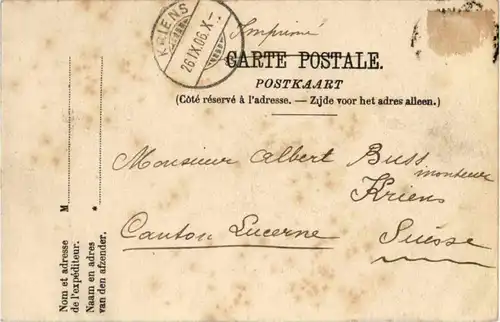 Imprimé
KRIENS
26.IX.06.X-
CARTE POSTALE.
POSTKAART
(Côté réservé à l'adresse. — Zijde voor het adres alleen.)
Monsieur Albert Buss
monteur
Kriens
Canton Lucerne
Suisse
Nom et adresse
de l'expéditeur.
M
Naam en adres
van den afzender.